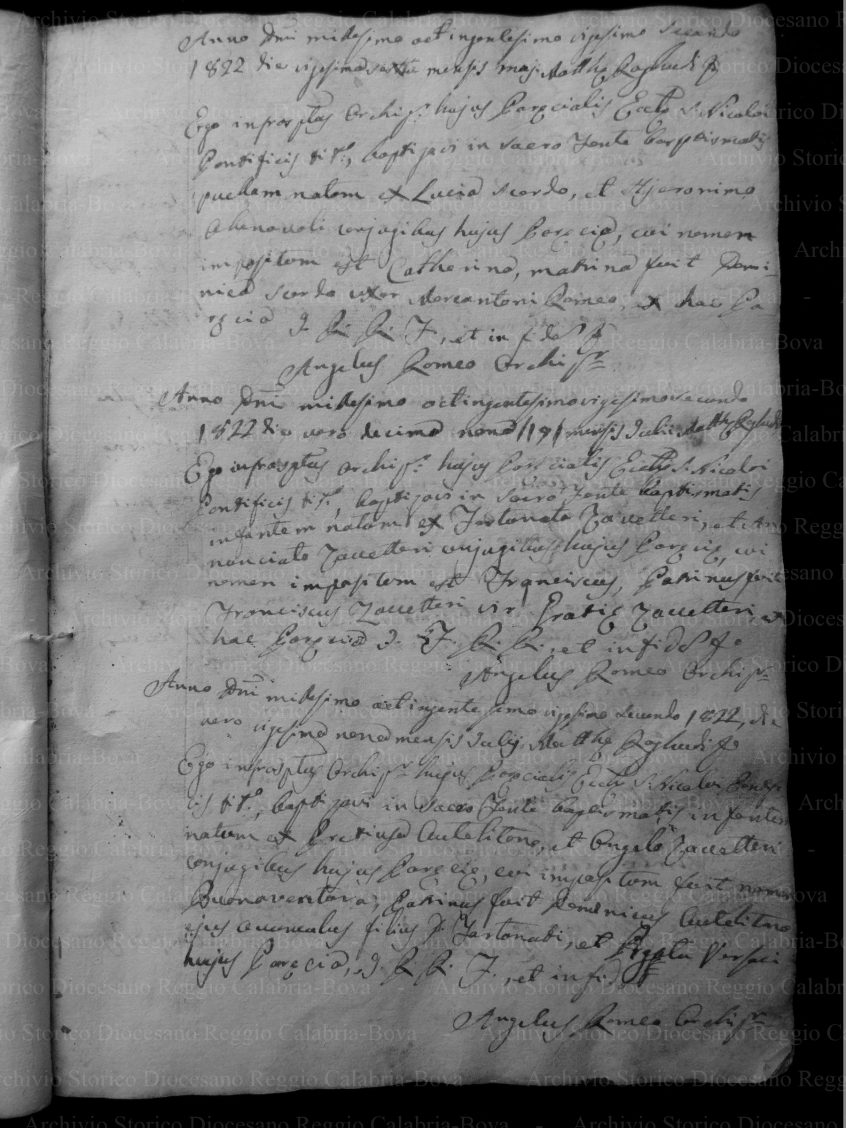 Anno Dni millesimo octingentesimo vigesimo secundo
1822 die vigesimasexta mensis maj
Ego infrasptus Archipr. hujus Parocialis Eccle S. Nicolai
Pontificis tit., baptizavi in sacro Fonte baptismatis
puellam natam ex Lucia Scordo, et Hjeronimo
Abenavoli conjugibus hujus Parocia, cui nomen
impositum est Catherina, matrina fuit Domi-
nica Scordo uxor Mercantoni Romeo, ex hac Pa
rocia et in fide
Angelus Romeo Archipr.
Anno Dni millesimo octingentesimo vigesimo secundo
1822 die vero decima nona /19/ mensis Julii
Ego infrasptus Archipr. hujus Parocialis Eccle S. Nicolai
Pontificis tit., baptizavi in Sacro Fonte baptismatis
infantem natum ex Fortunata Zavetteri, et An
nunciato Zavetteri conjugibus hujus Parocie, cui
nomen impositum est Franciscus, Patrinus fuit
Franciscus Zavetteri vir Zavetteri ex
hac Parocia et in fide
Angelus Romeo Archipr.
Anno Dni millesimo octingentesimo vigesimo secundo 1822, die
vero vigesima nona mensis Julij
Ego infrasptus Archipr. hujus Parocialis Eccle S. Nicolai
tit., baptizavi in Sacro Fonte baptismatis infantem
natum ex Autelitano, et Angelo Zavetteri
conjugibus hujus Parocie, cui impositum fuit nomen
Buonaventura, Patrinus fuit Dominicus Autelitano
ejus avunculus filius Fortunati, et
hujus Parocia, et in fide
Angelus Romeo Archipr.
Archivio Storico Diocesano Reggio Calabria-Bova